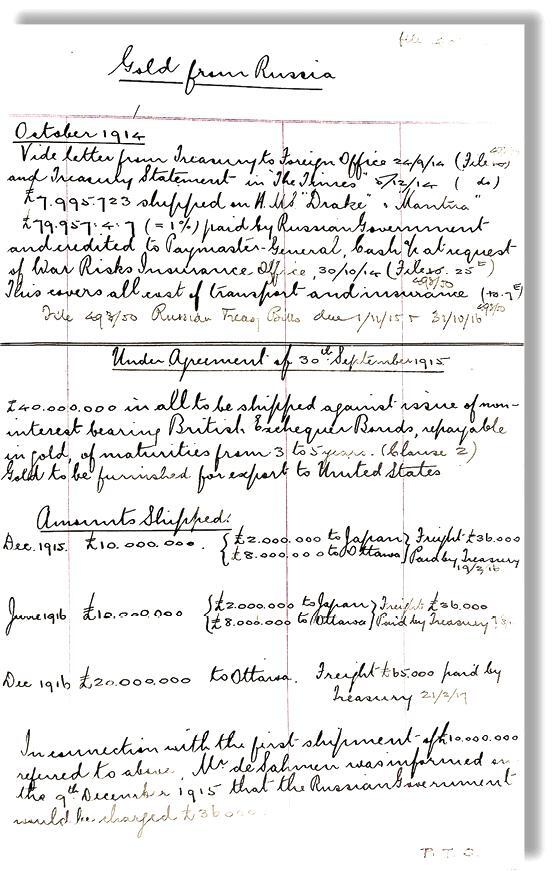 file
Gold from Russia
October 1914
Vide letter from Treasury to Foreign Office 24/9/14 (File
and Treasury Statement in "The Times" 5/12/14 ( do)
£7.995.723 shipped on H.M.S "Drake" & "Mantua"
£79.957.4.7 (=1%) paid by Russian Government
and credited to Paymaster-General, Cash a/c at request
of War Risks Insurance Office, 30/10/14 (File no. 25E)
493/50
This covers all cost of transport and insurance (no. 7E)
493/50
File 493/50 Russian Treasy Bills due 1/11/15 & 31/10/16
Under Agreement of 30th September 1915
£40.000.000 in all to be shipped against issue of non-
interest bearing British Exchequer Bonds, repayable
in gold, of maturities from 3 to 5 years. (Clause 2)
Gold to be furnished for export to United States
Amounts Shipped:
Dec. 1915 £10.000.000. { £2.000.000 to Japan } Freight £36.000
{ £8.000.000 to Ottawa } Paid by Treasury
19/2/16
June 1916 £10.000.000 { £2.000.000 to Japan } Freight £36.000
{ £8.000.000 to Ottawa } Paid by Treasury
Dec 1916 £20.000.000 to Ottawa. Freight £65.000 paid by
Treasury 21/2/17
In connection with the first shipment of £10.000.000
referred to above, Mr de Sahmen was informed on
the 9th December 1915 that the Russian Government
would be charged £36000
P.T.O.